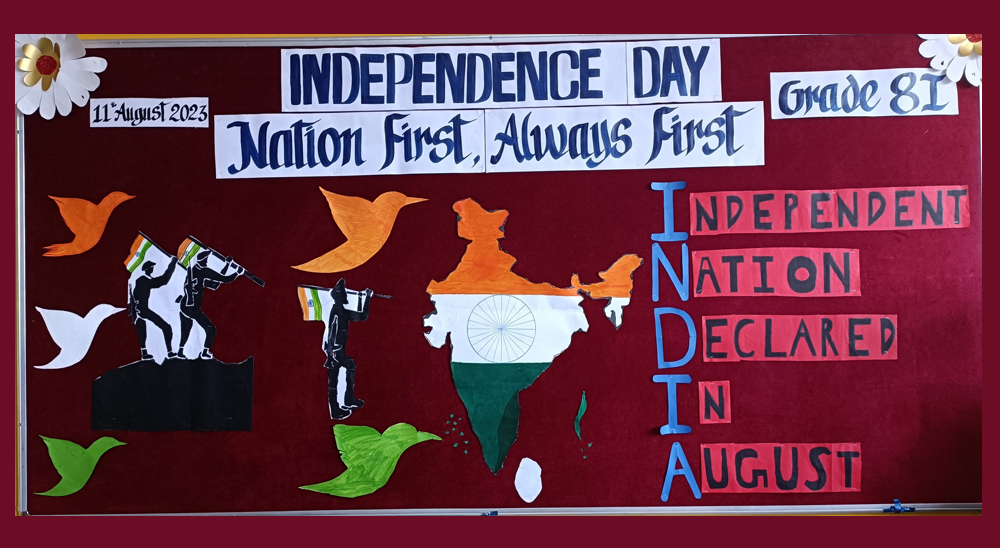 INDEPENDENCE DAY
11th August 2023
Grade 8I
Nation First, Always First
INDEPENDENT
NATION
DECLARED
IN
AUGUST